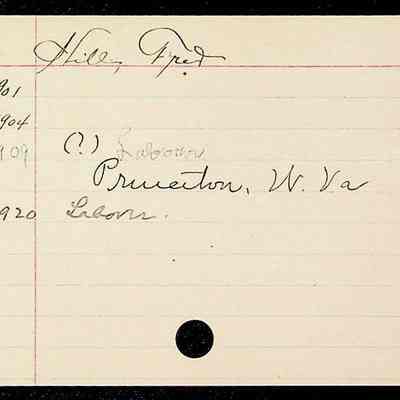 Hill, Fred
901
904
909 (?) Laborer
Princeton, W. Va
920 Laborer.